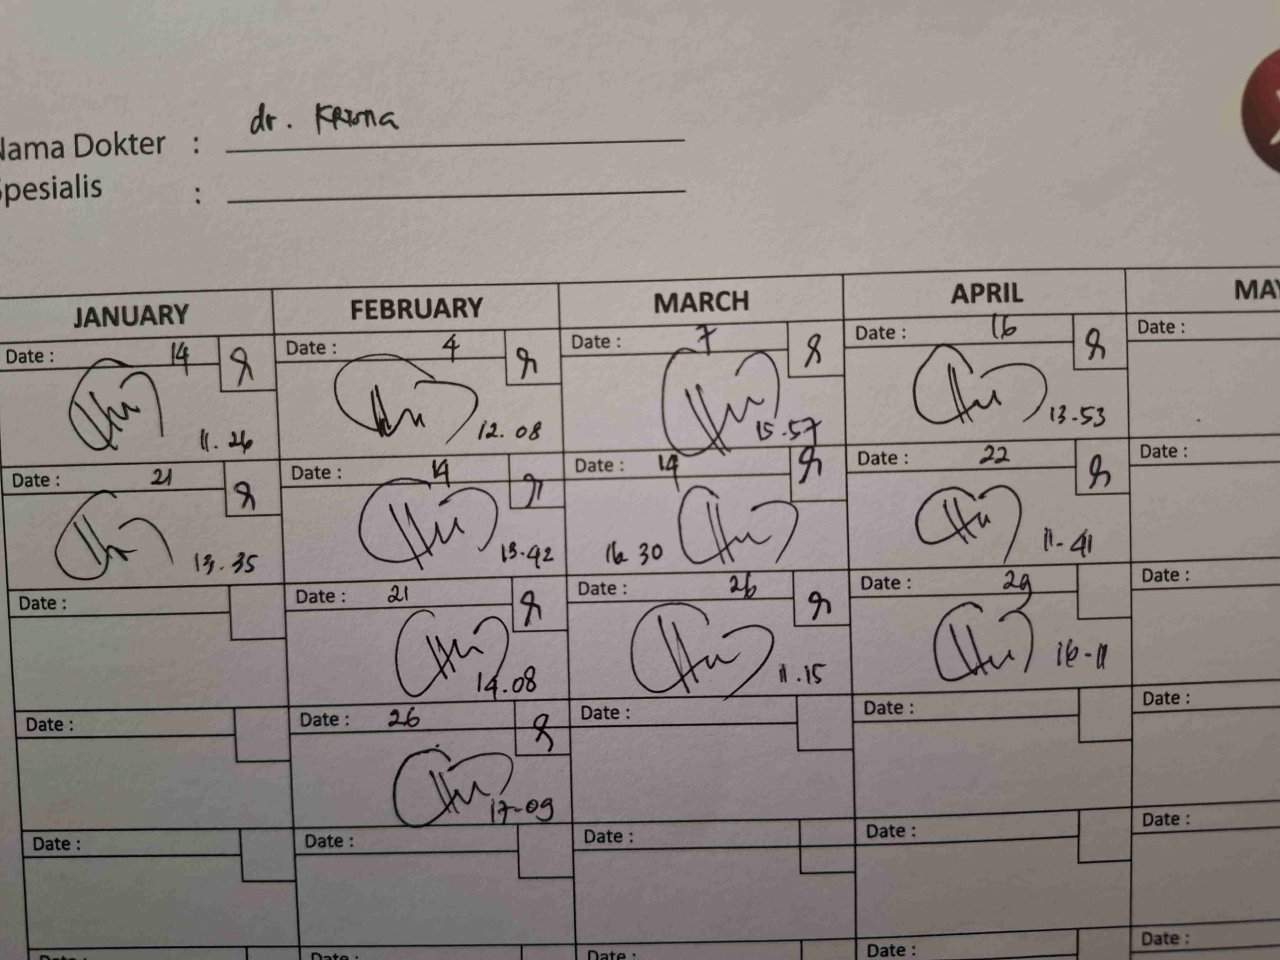 Nama Dokter : dr. Krisna
Spesialis :
JANUARY FEBRUARY MARCH APRIL MAY
Date : 14 Date : 4 Date : 7 Date : 16 Date :
11.26 12.08 15.57 13-53
Date : 21 Date : 14 Date : 19 Date : 22 Date :
13.35 13.42 16 30 11-41
Date : Date : 21 Date : 26 Date : 29 Date :
14.08 11.15 16-11
Date : Date : 26 Date : Date : Date :
17-09
Date : Date : Date : Date : Date :
Date : Date : Date : Date : Date :